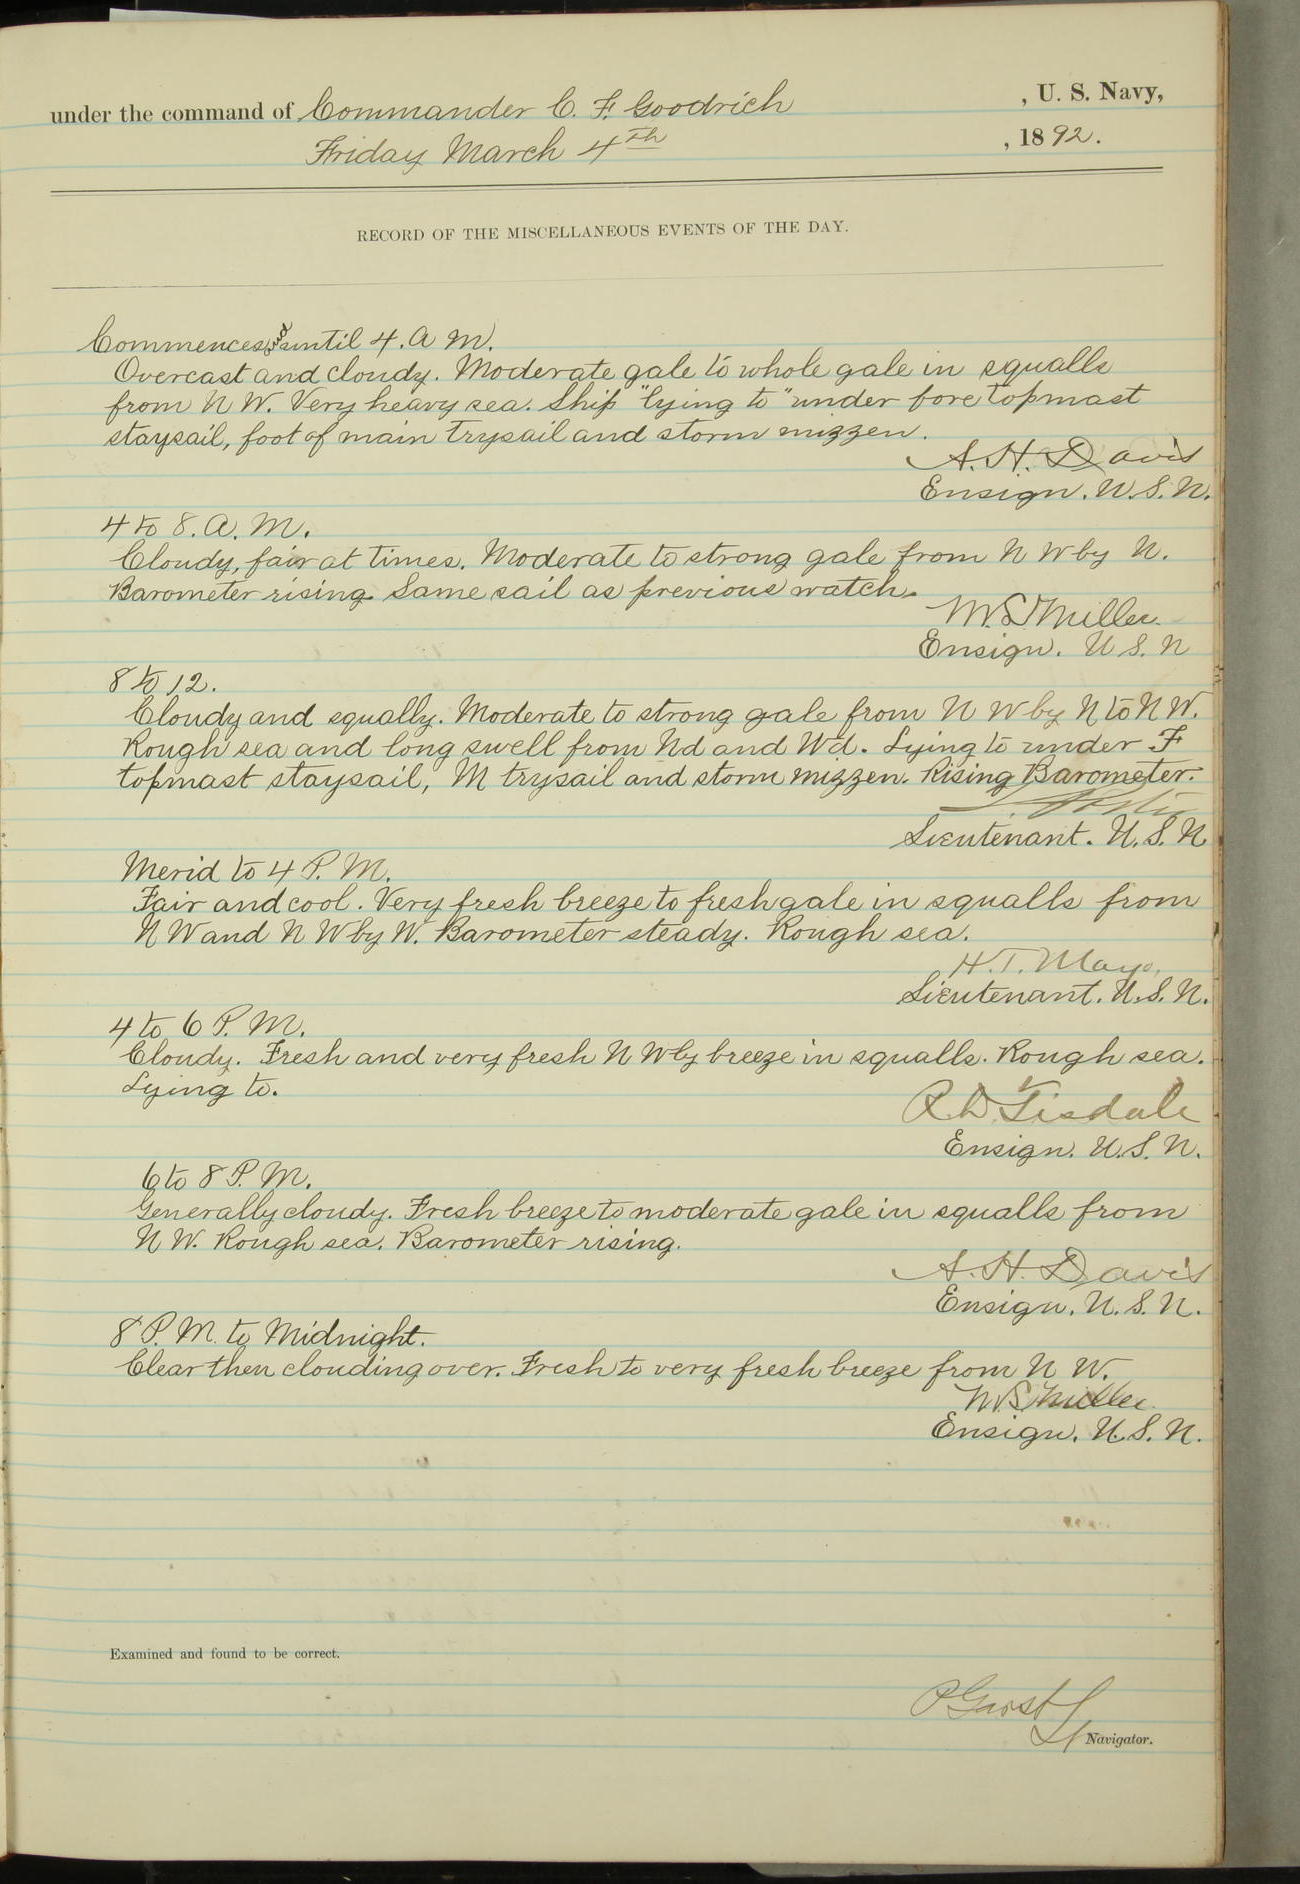 under the command of Commander C. F. Goodrich , U. S. Navy,
Friday March 4th , 1892.
RECORD OF THE MISCELLANEOUS EVENTS OF THE DAY.
Commences & until 4. A M.
Overcast and cloudy. Moderate gale to whole gale in squalls
from N W. Very heavy sea. Ship "lying to" under fore topmast
staysail, foot of main trysail and storm mizzen.
A. H. Davis
Ensign. U. S. N.
4 to 8. A. M.
Cloudy, fair at times. Moderate to strong gale from N W by N.
Barometer rising. Same sail as previous watch.
W. S. Miller
Ensign. U S. N
8 to 12.
Cloudy and squally. Moderate to strong gale from N W by N to N W.
Rough sea and long swell from Nd and Wd. Lying to under F
topmast staysail, M trysail and storm mizzen. Rising Barometer.
Lieutenant. U. S. N
Merid to 4 P. M.
Fair and cool. Very fresh breeze to fresh gale in squalls from
N W and N W by W. Barometer steady. Rough sea.
H. T. Mayo,
Lieutenant. U. S. N.
4 to 6 P. M.
Cloudy. Fresh and very fresh N W by breeze in squalls. Rough sea.
Lying to.
R D Tisdale
Ensign. U. S. N.
6 to 8 P. M.
Generally cloudy. Fresh breeze to moderate gale in squalls from
N W. Rough sea. Barometer rising.
A. H. Davis
Ensign. U. S. N.
8 P. M. to Midnight.
Clear then clouding over. Fresh to very fresh breeze from N W.
W S Miller
Ensign. U. S. N.
Examined and found to be correct.
P Garst
Lt Navigator.